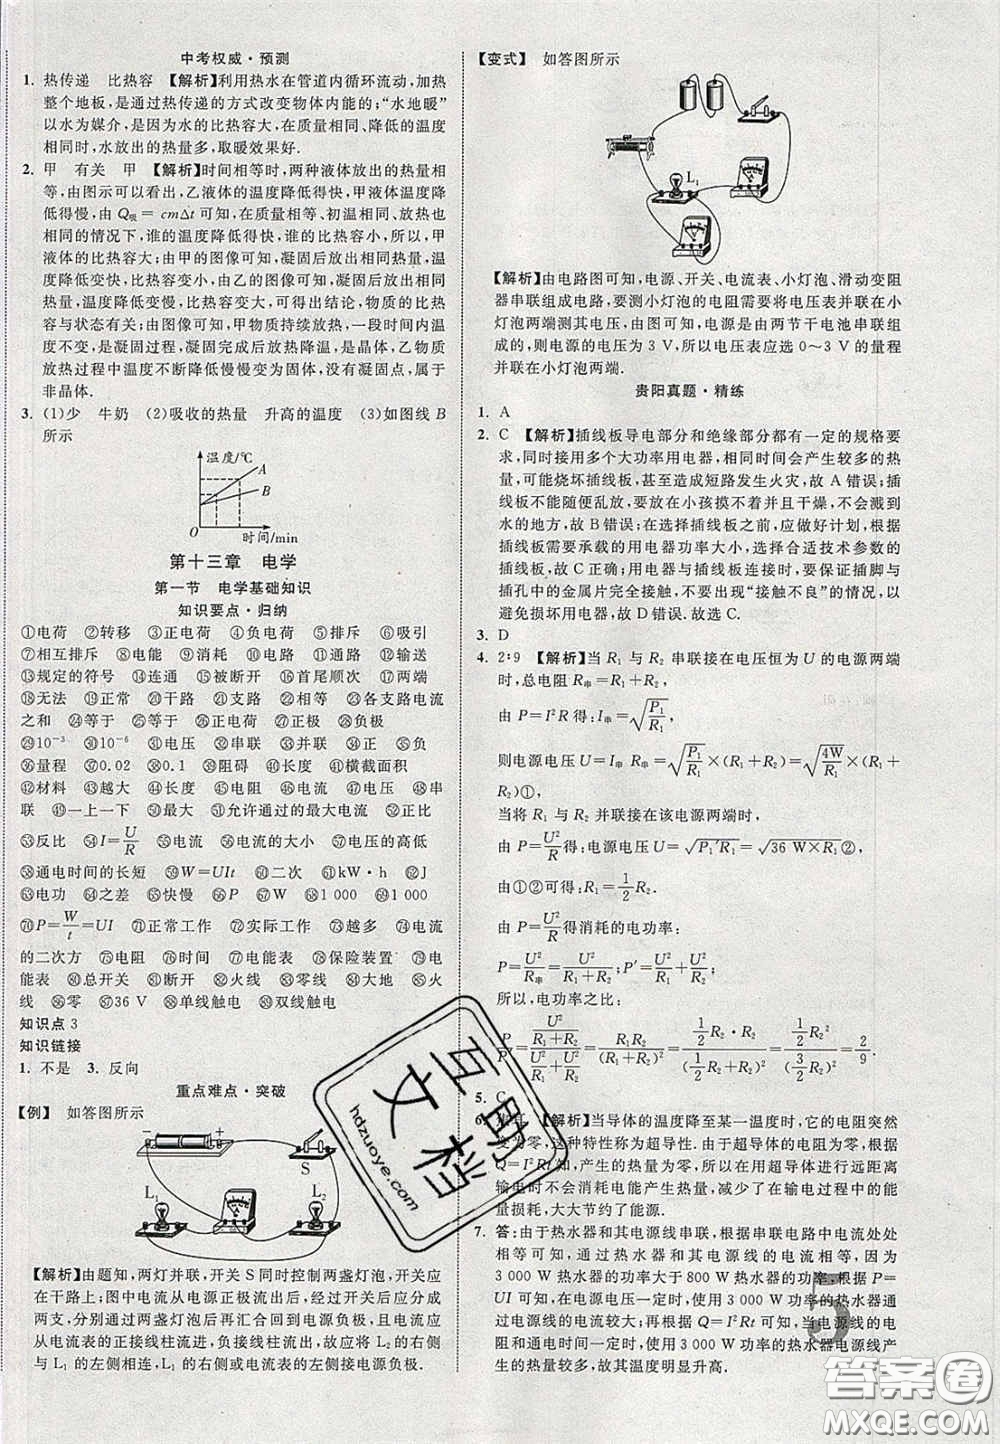 中考权威·预测
1. 热传递　比热容　【解析】利用热水在管道内循环流动,加热
整个地板,是通过热传递的方式改变物体内能的;“水地暖”
以水为媒介,是因为水的比热容大,在质量相同、降低的温度
相同时,水放出的热量多,取暖效果好.
2. 甲　有关　甲　【解析】时间相等时,两种液体放出的热量相
等,由图示可以看出,乙液体的温度降低得快,甲液体温度降
低得慢,由 Q吸 = cmΔt 可知,在质量相等、初温相同、放热也
相同的情况下,谁的温度降低得快,谁的比热容小,所以,甲
液体的比热容大;由甲的图像可知,凝固后放出相同热量,
温度降低变快,比热容变小;由乙的图像可知,凝固后放出相
同热量,温度降低变慢,比热容变大.可以得出结论:物质的
比热容与状态有关;由图像可知,甲物质持续放热,一段时间内温
度不变,是凝固过程,凝固完成后放热降温,是晶体,乙物质
放热过程中温度不断降低慢慢变为固体,没有固定凝固点,属于
非晶体.
3. (1)少　牛奶　(2)吸收的热量　升高的温度　(3)如图线 B
所示
温度/℃
A
B
0
时间/min
第十三章　电学
第一节　电学基础知识
知识要点·归纳
①电荷　②转移　③正电荷　④负电荷　⑤排斥　⑥吸引
⑦相互排斥　⑧电能　⑨消耗　⑩电路　⑪通路　⑫输送
⑬规定的符号　⑭连通　⑮被断开　⑯首尾顺次　⑰两端
⑱无法　⑲正常　⑳干路　㉑支路　㉒相等　㉓各支路电流
之和　㉔等于　㉕等于　㉖串联　㉗正极　㉘负极
㉙10⁻³　㉚10⁻⁶　㉛电压　㉜串联　㉝并联　㉞正　㉟负
㊱量程　㊲0.02　㊳0.1　㊴阻碍　㊵长度　㊶横截面积
㊷材料　㊸越大　㊹长度　㊺电流　㊻电压　㊼电流　㊽串
联　㊾一上一下　㊿最大　51允许通过的最大电流　52正比
53反比　54 I=U/R　55电流　56电流的大小　57电压的高低
58通电时间的长短　59 W=UIt　60二次　61 kW·h　62电流
63电功　64之差　65快慢　66 P　67 W　68 1 000　69 1 000
70 P=W/t=UI　71正常工作　72实际工作　73越多　74电流
的二次方　75电阻　76时间　77电表　78保险装置　79电表
80总开关　81断开　82火线　83零线　84大地　85火
线　86零　87 36 V　88单线触电　89双线触电
知识点 3
知识链接
1. 不是　3. 反向
重点难点·突破
【例】　如答图所示
−
+
S
L₁
L₂
【解析】由题知,两灯并联,开关 S 同时控制两盏灯泡,开关应
在干路上;图中电流从电源正极流出后经过开关,应分成两
支,分别通过两盏灯泡后再汇合流回负极,而电流表的电流
从电流表的正接线柱流进,负接线柱流出,故应将 L₂ 的右侧
与 L₁ 的左侧相连,L₁ 的右侧与电流表的左侧接电源负极.
【变式】　如答图所示
L₁
【解析】由电路图可知,电源、开关、电流表、小灯泡、滑动变阻
器串联组成电路,要测小灯泡的电阻需要将电压表并联在小
灯泡两端测其电压,由图可知,电源是由两节干电池串联组
成的,则电源的电压为 3 V,所以电压表应选 0～3 V 的量程
并联在小灯泡两端.
贵阳真题·精练
1. A
2. C　【解析】插线板导电部分和绝缘部分都有一定的规格要
求,同时接用多个大功率用电器,相同时间会产生较多的热
量,可能烧坏插线板,甚至造成短路发生火灾,故 A 错误;插
线板不能随便乱放,要放在小孩摸不着且干燥,不会触到
水的地方,故 B 错误;在选择插线板之前,应计算出,根据
插线板需要承载的用电器功率大小,选择合适技术参数的
插线板,故 C 正确;用电器与插线板连接时,要保证插脚与
插孔中的金属片完全接触,不要出现“接触不良”的情况,以
避免损坏用电器,故 D 错误.故选 C.
3. D
4. 2∶9　【解析】当 R₁ 与 R₂ 串联接在电压恒为 U 的电源两端
时,总电阻 R串=R₁+R₂,
由 P=I²R 得:I串=√(P₁/R₁),
则电源电压 U=I串 R串=√(P₁/R₁)×(R₁+R₂)=√(4W/R₁)×(R₁+
R₂)①,
当将 R₁ 与 R₂ 并联接在该电源两端时,
由 P=U²/R 得:电源电压 U=√(P₁′R₁)=√(36 W×R₁)②,
由①②可得:R₁=½R₂.
由 P=U²/R 得消耗的电功率:
P=U²/R串=U²/(R₁+R₂);P′=U²/R₁+U²/R₂,
所以,电功率之比:
P/P′=(U²/(R₁+R₂))/(U²/R₁+U²/R₂)=R₁R₂/(R₁+R₂)²=(½R₂·R₂)/(½R₂+R₂)²=(½R₂²)/(3/2R₂)²=2/9.
5. C
【解析】当导体的温度降至某一温度时,它的电阻突然
变为零,这种特性称为超导性.由于超导体的电阻为零,根据
Q=I²Rt 知,产生的热量为零,所以用超导体进行远距离
输电时不会消耗电能产生热量,减少了在输电过程中的能
量损耗,大大节约了能源.
7. 答:由于热水器和其电源线串联,根据串联电路中电流处处
相等可知,通过热水器和其电源线的电流相等,因为
3 000 W 热水器的功率大于 800 W 热水器的功率,根据 P=
UI 可知,在电源电压一定时,使用 3 000 W 的热水器会产生
通过电源线的电流较大;再根据 Q=I²Rt 可知,当电源线的电
阻和通电时间一定时,使用 3 000 W 的热水器时电源线产
生的热量较多,故其温度明显升高.
5
互助文档
hdzuoye.com
答案圈
MXQE.COM